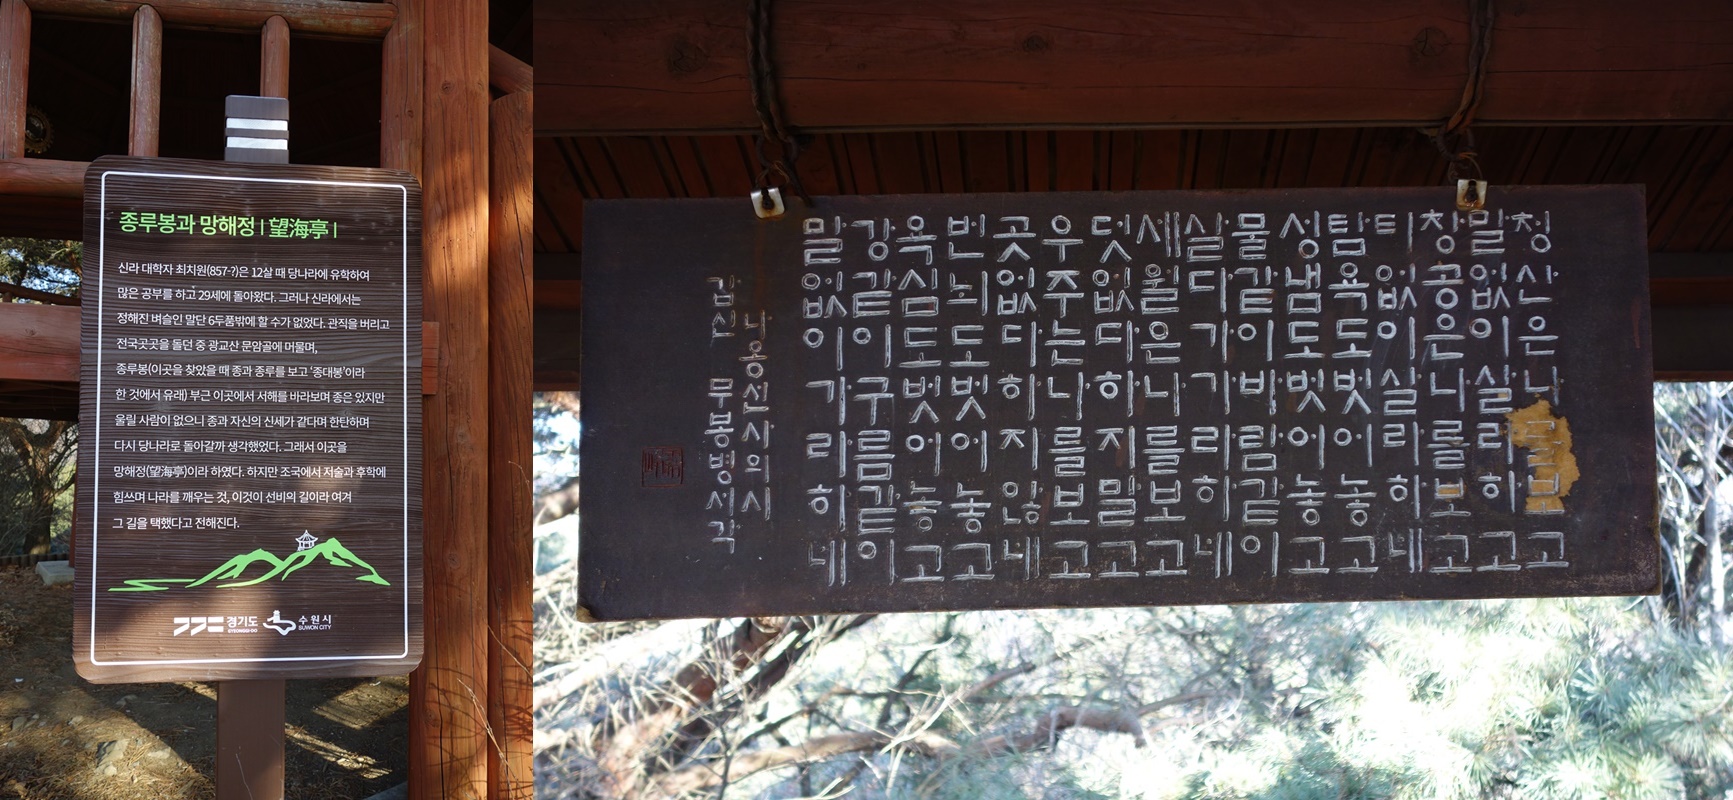 종루봉과 망해정 | 望海亭 |
신라 대학자 최치원(857-?)은 12살 때 당나라에 유학하여
많은 공부를 하고 29세에 돌아왔다. 그러나 신라에서는
정해진 벼슬인 말단 6두품밖에 할 수가 없었다. 관직을 버리고
전국곳곳을 돌던 중 광교산 문암골에 머물며,
종루봉(이곳을 찾았을 때 종과 종루를 보고 '종대봉'이라
한 것에서 유래) 부근 이곳에서 서해를 바라보며 종은 있지만
울릴 사람이 없으니 종과 자신의 신세가 같다며 한탄하며
다시 당나라로 돌아갈까 생각했었다. 그래서 이곳을
망해정(望海亭)이라 하였다. 하지만 조국에서 저술과 후학에
힘쓰며 나라를 깨우는 것, 이것이 선비의 길이라 여겨
그 길을 택했다고 전해진다.
경기도
GYEONGGI-DO
수원시
SUWON CITY
청산은나를보고
말없이살라하고
창공은나를보고
티없이살라하네
탐욕도벗어놓고
성냄도벗어놓고
물같이바람같이
살다가가라하네
세월은나를보고
덧없다하지말고
우주는나를보고
곳없다하지않네
번뇌도벗어놓고
욕심도벗어놓고
강같이구름같이
말없이가라하네
나옹선사의시
갑신 무봉병서각